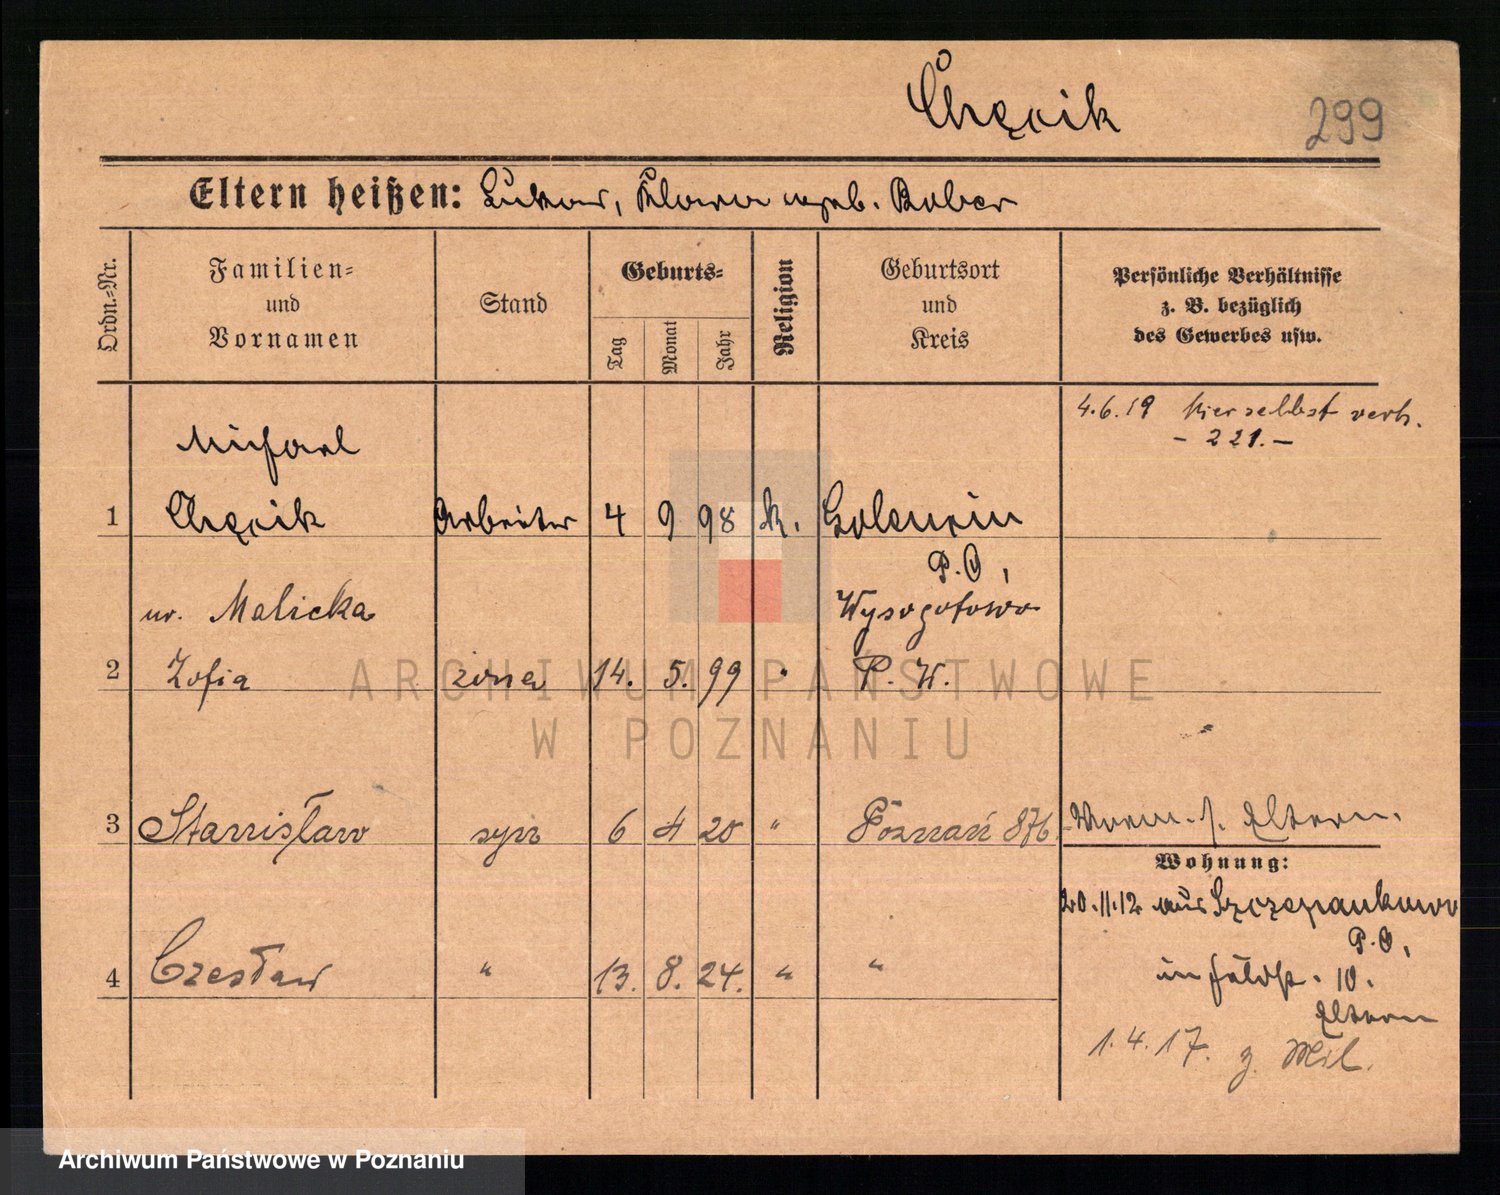 Chęcik
299
Eltern heißen: Lukas, Klara geb. Bober
Ordn.-Nr.
Familien-
und
Vornamen
Stand
Geburts-
Tag
Monat
Jahr
Religion
Geburtsort
und
Kreis
Persönliche Verhältnisse
z. B. bezüglich
des Gewerbes usw.
4.6.19 hierselbst verh.
- 221. -
Michael
1 Chęcik Arbeiter 4 9 98 k. Golenein
P. O,
ur. Malicka Wysogotowo
2 Zofia żona 14. 5. 99 " P. W.
3 Stanisław syn 6 4 20 " Poznań 876 Vorm. s. Eltern.
Wohnung:
20.11.12 aus Szczepankowo
P. O,
4 Czesław " 13. 8. 24. " "
in Feldstr. 10.
Eltern
1.4.17. z. Mil.
ARCHIWUM PAŃSTWOWE
W POZNANIU
Archiwum Państwowe w Poznaniu